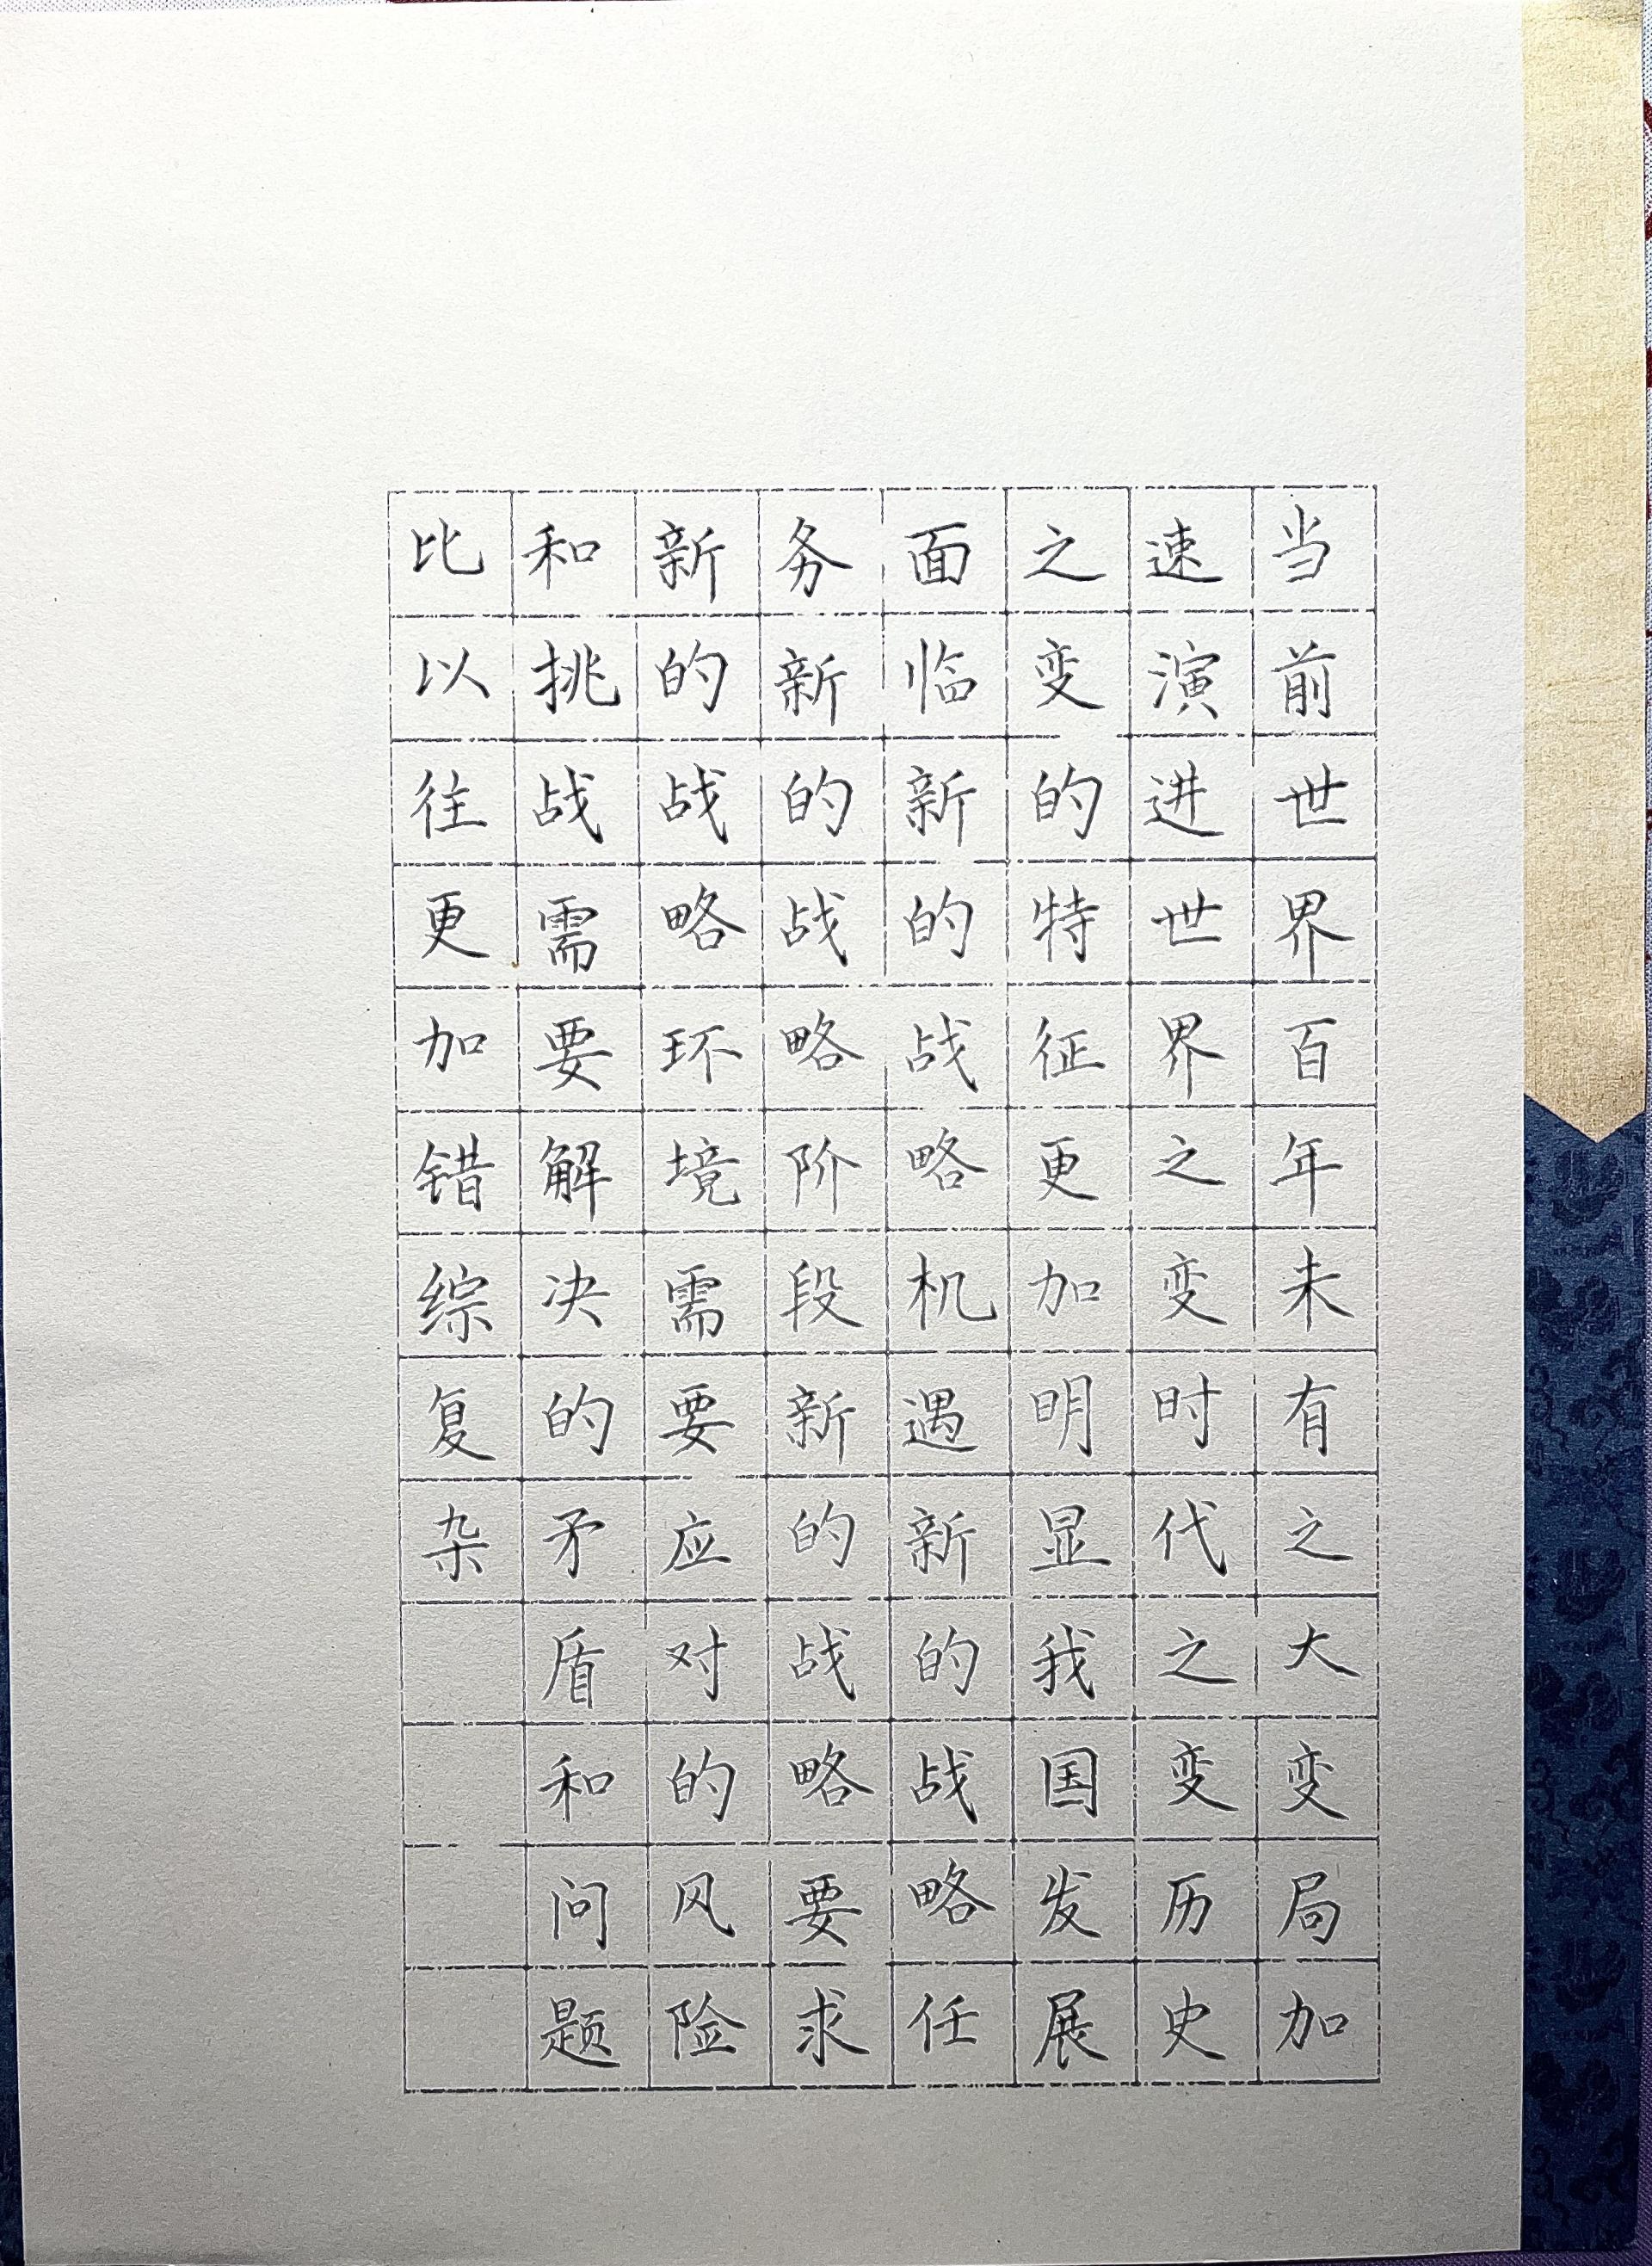 当前世界百年未有之大变局加
速演进世界之变时代之变历史
之变的特征更加明显我国发展
面临新的战略机遇新的战略任
务新的战略阶段新的战略要求
新的战略环境需要应对的风险
和挑战需要解决的矛盾和问题
比以往更加错综复杂